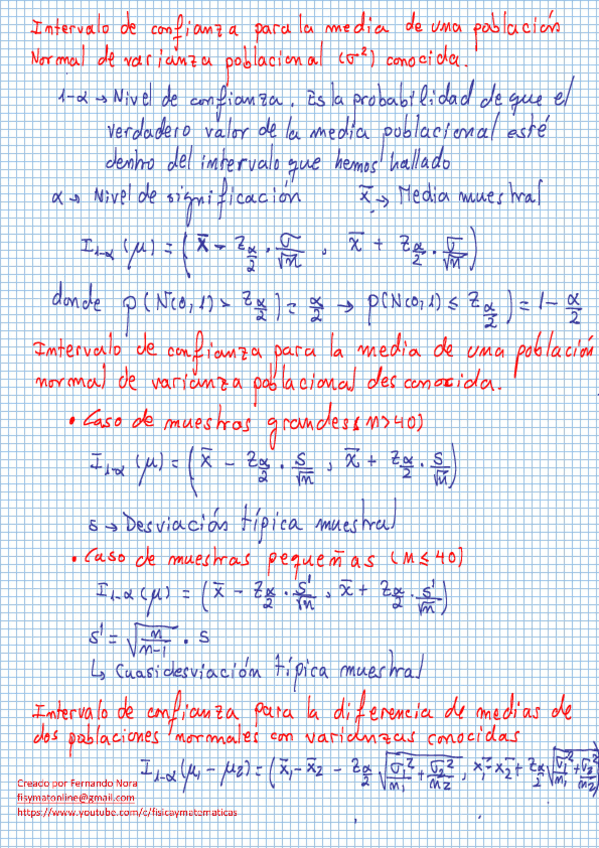 Intervalo de confianza para la media de una población
Normal de varianza poblacional (σ²) conocida.
1-α → Nivel de confianza. Es la probabilidad de que el
verdadero valor de la media poblacional esté
dentro del intervalo que hemos hallado
α → Nivel de significación    x̄ → Media muestral
I₁₋α (μ) = ( x̄ - z_α/2 · σ/√n , x̄ + z_α/2 · σ/√n )
donde p(N(0,1) > z_α/2) = α/2 → p(N(0,1) ≤ z_α/2) = 1 - α/2
Intervalo de confianza para la media de una población
normal de varianza poblacional desconocida.
• Caso de muestras grandes (n>40)
I₁₋α (μ) = ( x̄ - z_α/2 · s/√n , x̄ + z_α/2 · s/√n )
s → Desviación típica muestral
• Caso de muestras pequeñas (n≤40)
I₁₋α (μ) = ( x̄ - z_α/2 · s'/√n , x̄ + z_α/2 · s'/√n )
s' = √(n/(n-1)) · s
↳ Cuasidesviación típica muestral
Intervalo de confianza para la diferencia de medias de
dos poblaciones normales con varianzas conocidas
I₁₋α (μ₁ - μ₂) = ( x̄₁ - x̄₂ - z_α/2 √(σ₁²/n₁ + σ₂²/n₂) , x̄₁ - x̄₂ + z_α/2 √(σ₁²/n₁ + σ₂²/n₂) )
Creado por Fernando Nora
fisymatonline@gmail.com
https://www.youtube.com/c/fisicaymatematicas